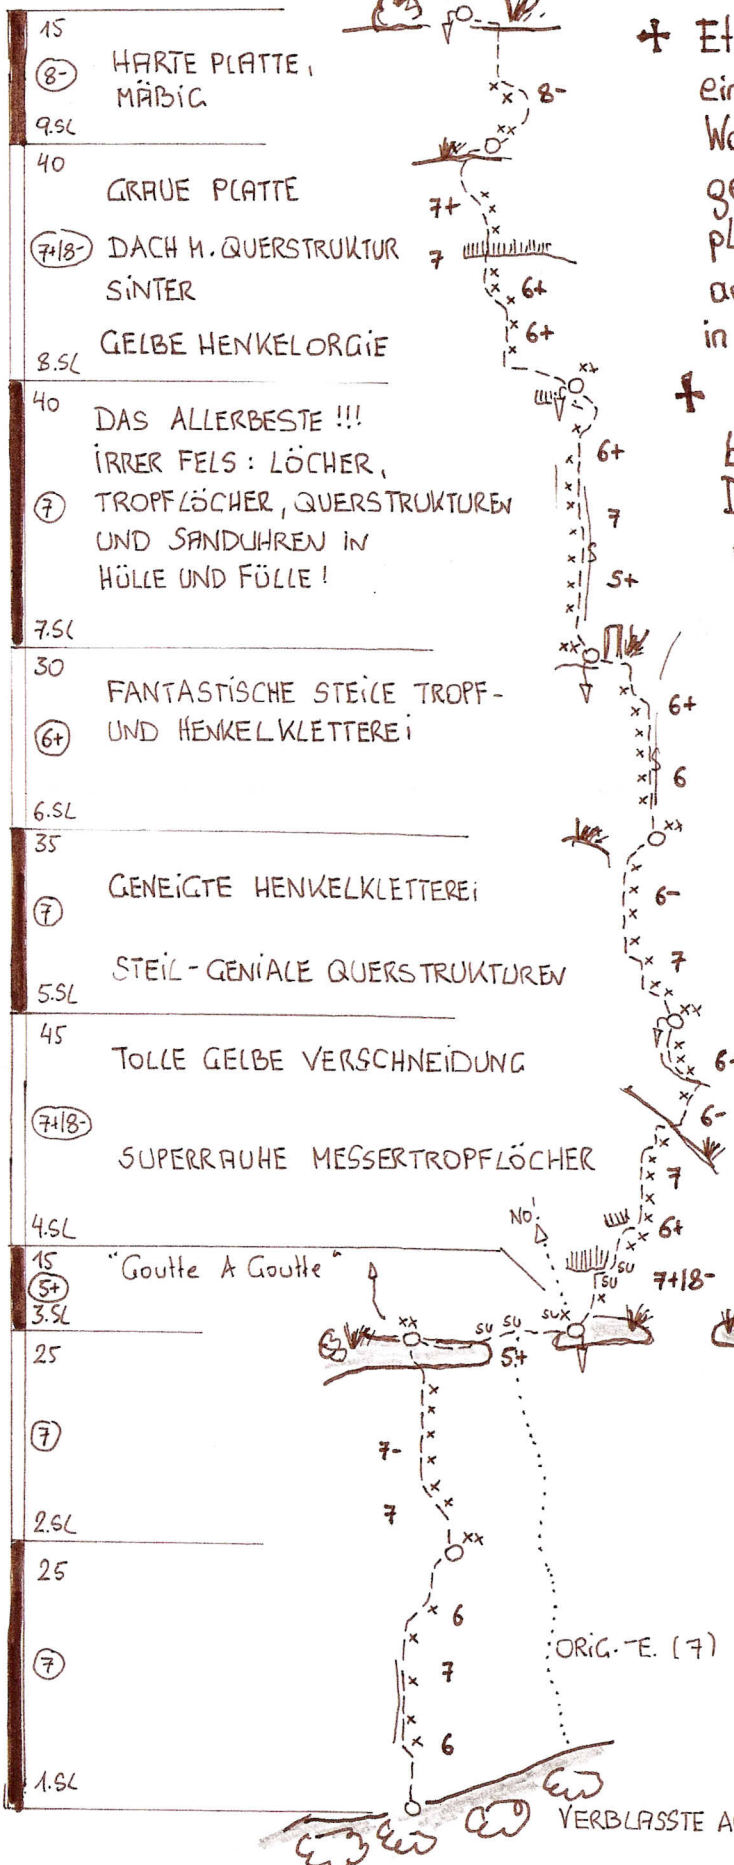 15
8-
HARTE PLATTE,
MÄßIG
9.SL
8-
40
GRAUE PLATTE
7+/8-
DACH M. QUERSTRUKTUR
SINTER
GELBE HENKELORGIE
8.SL
7+
7
6+
6+
40
DAS ALLERBESTE !!!
IRRER FELS: LÖCHER,
7
TROPFLÖCHER, QUERSTRUKTUREN
UND SANDUHREN IN
HÜLLE UND FÜLLE!
7.SL
6+
7
5+
30
FANTASTISCHE STEILE TROPF-
6+
UND HENKELKLETTEREI
6.SL
6+
6
35
7
GENEIGTE HENKELKLETTEREI
STEIL-GENIALE QUERSTRUKTUREN
5.SL
6-
7
45
TOLLE GELBE VERSCHNEIDUNG
7+/8-
SUPERRAUHE MESSERTROPFLÖCHER
4.SL
6-
6-
7
6+
7+/8-
NO!
15
5+
3.SL
"Goutte A Goutte"
SU SU SU SU SU
5+
25
7
2.SL
7-
7
25
7
1.SL
6
7
6
ORIG.-E. (7)
VERBLASSTE
in